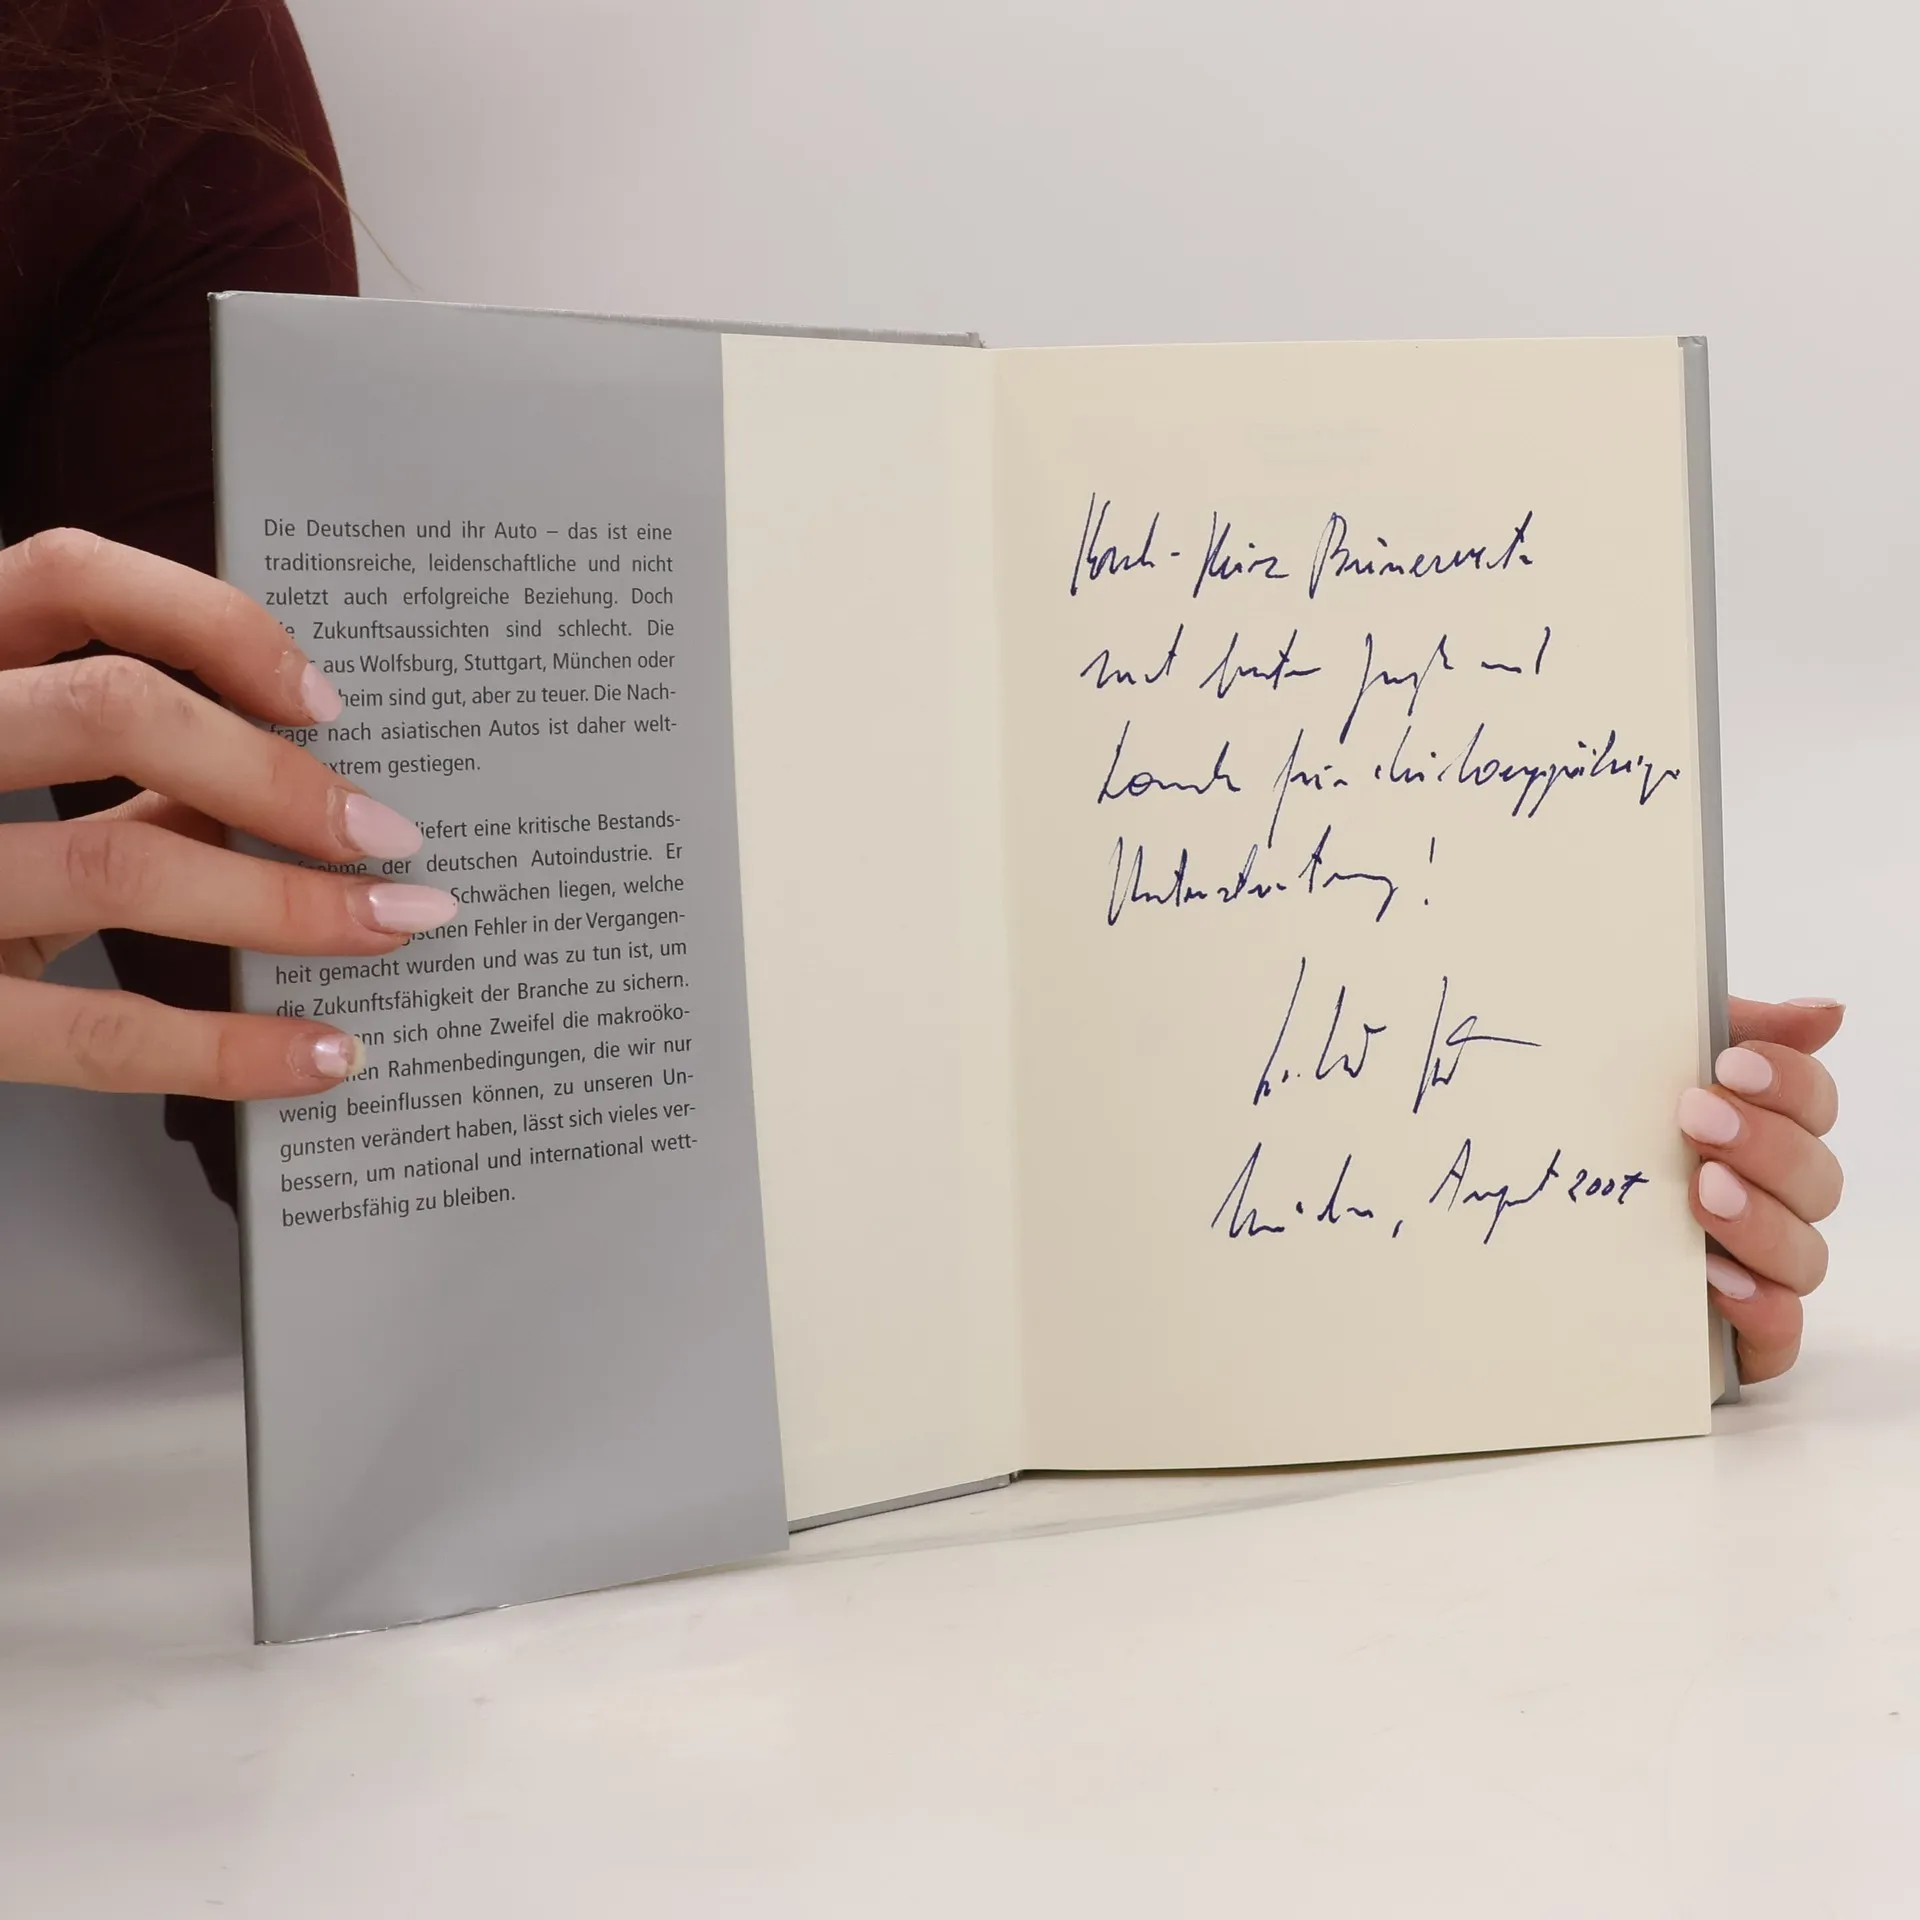 Die Deutschen und ihr Auto – das ist eine
traditionsreiche, leidenschaftliche und nicht
zuletzt auch erfolgreiche Beziehung. Doch
Zukunftsaussichten sind schlecht. Die
aus Wolfsburg, Stuttgart, München oder
heim sind gut, aber zu teuer. Die Nach-
frage nach asiatischen Autos ist daher welt-
extrem gestiegen.
liefert eine kritische Bestands-
der deutschen Autoindustrie. Er
Schwächen liegen, welche
gischen Fehler in der Vergangen-
heit gemacht wurden und was zu tun ist, um
die Zukunftsfähigkeit der Branche zu sichern.
sich ohne Zweifel die makroöko-
Rahmenbedingungen, die wir nur
wenig beeinflussen können, zu unseren Un-
gunsten verändert haben, lässt sich vieles ver-
bessern, um national und international wett-
bewerbsfähig zu bleiben.
mit und
Dank für die langjährige
Unterstützung!
München, August 2007